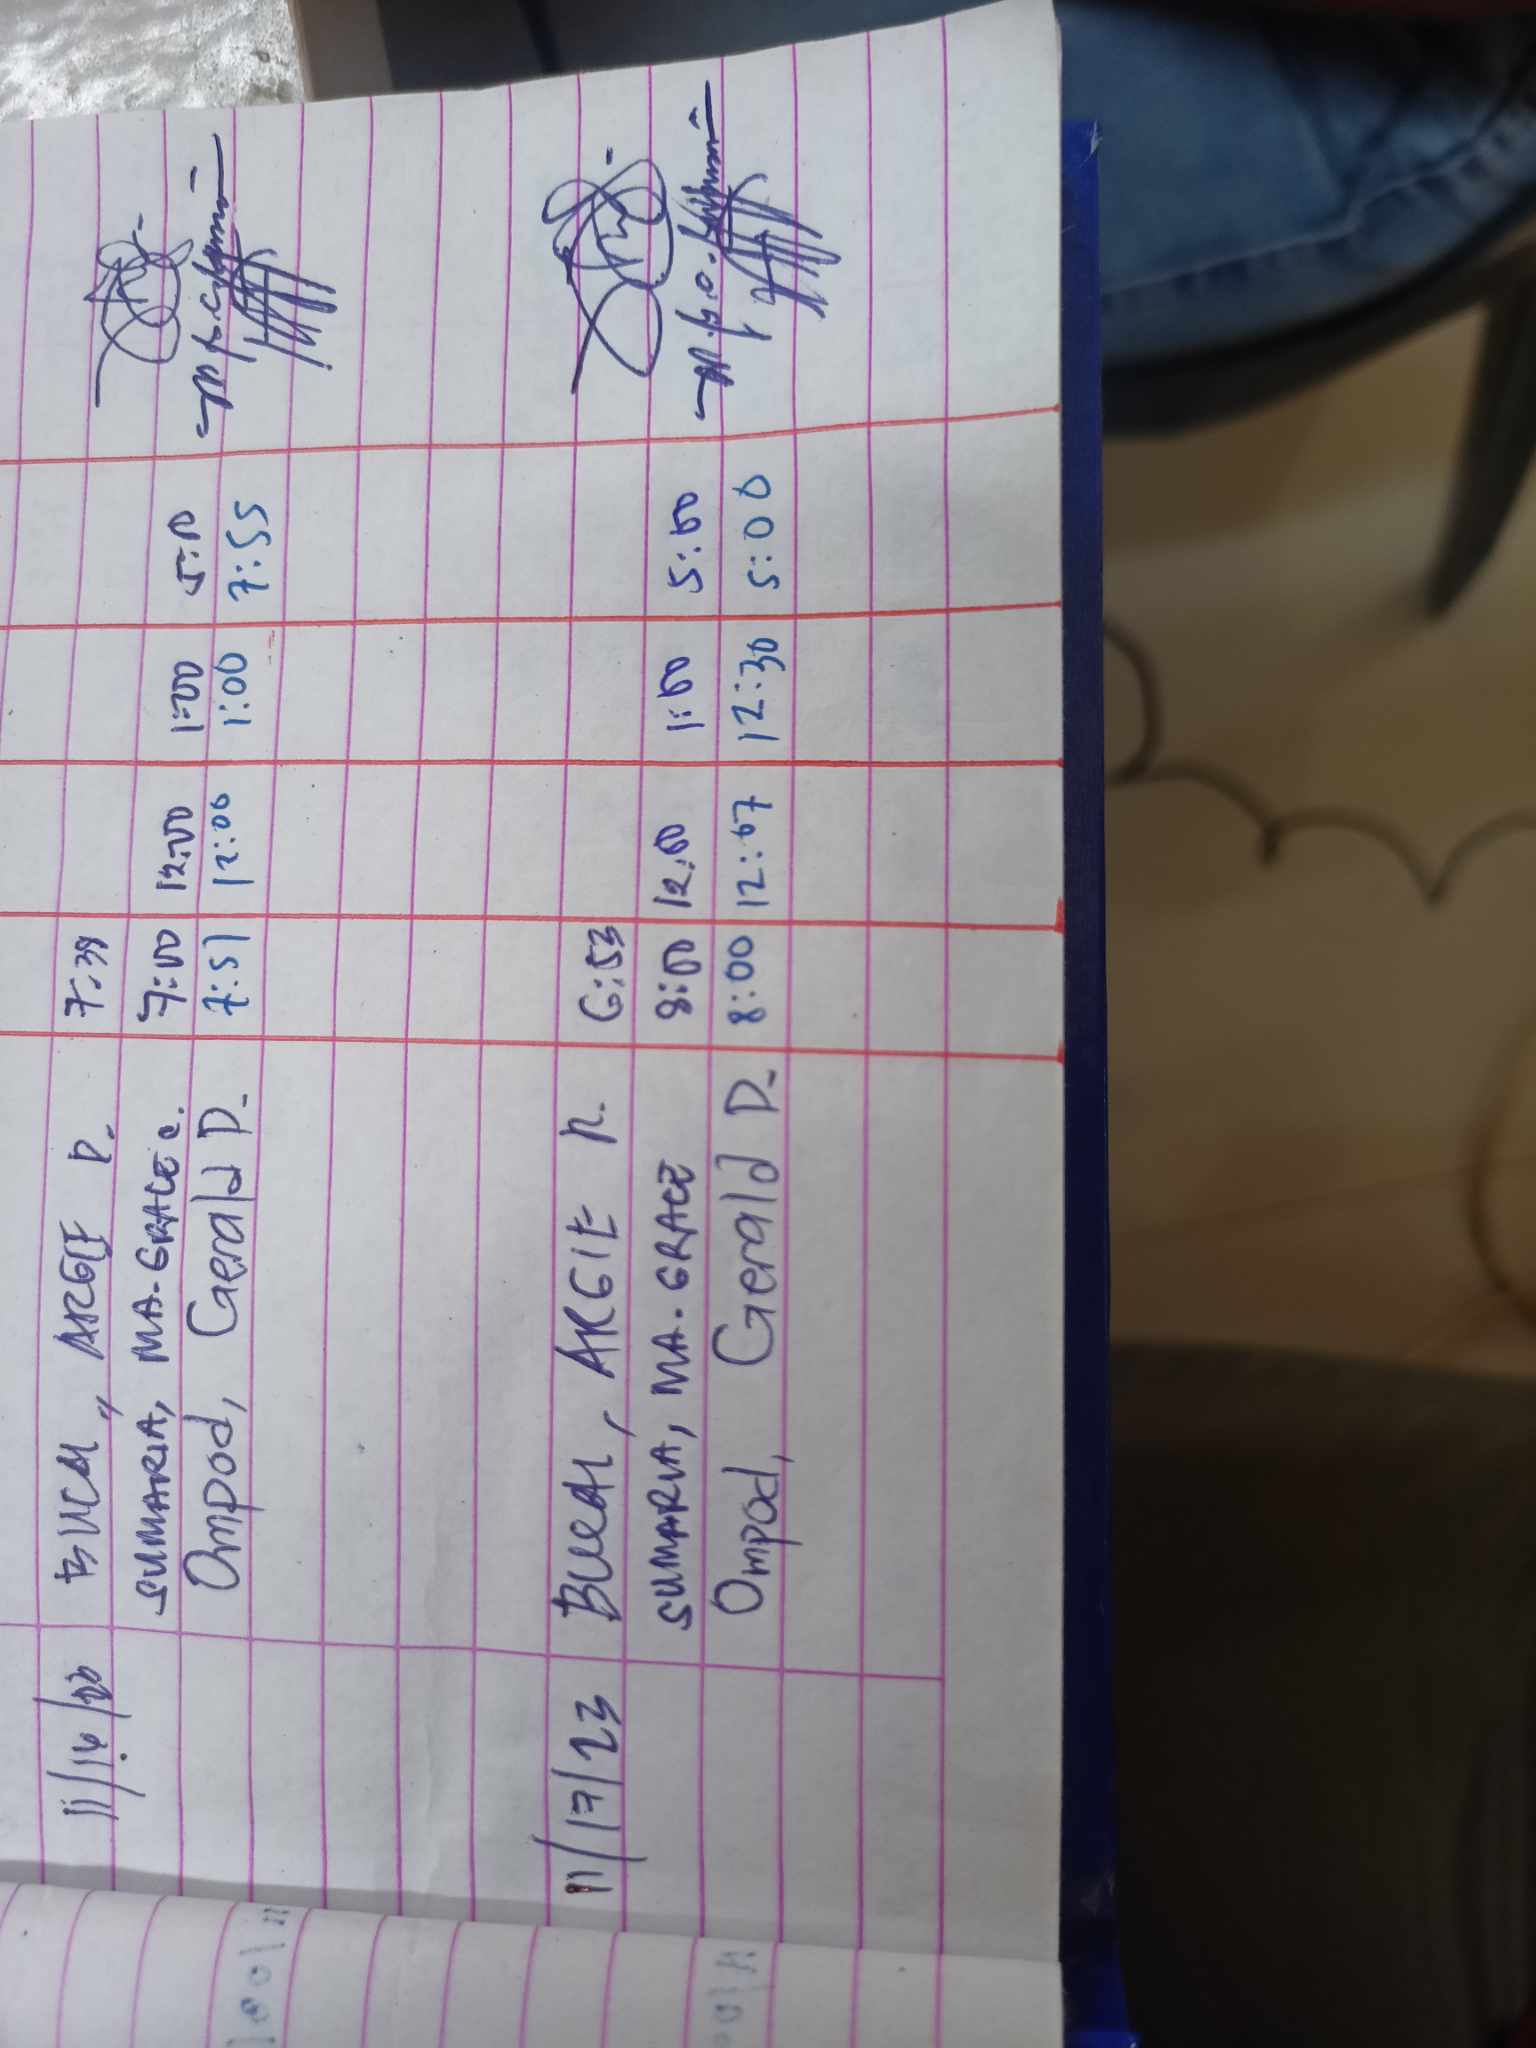 11/16/23 BUCAL, ARGIE P. 7:38
SUMARIA, MA. GRACE C. 7:00 12:00 1:00 5:00
Ompod, Gerald P. 7:51 12:00 1:00 7:55
11/17/23 BUCAL, ARGIE P. 6:53
SUMARIA, MA. GRACE 8:00 12:00 1:00 5:00
Ompod, Gerald P. 8:00 12:07 12:30 5:00